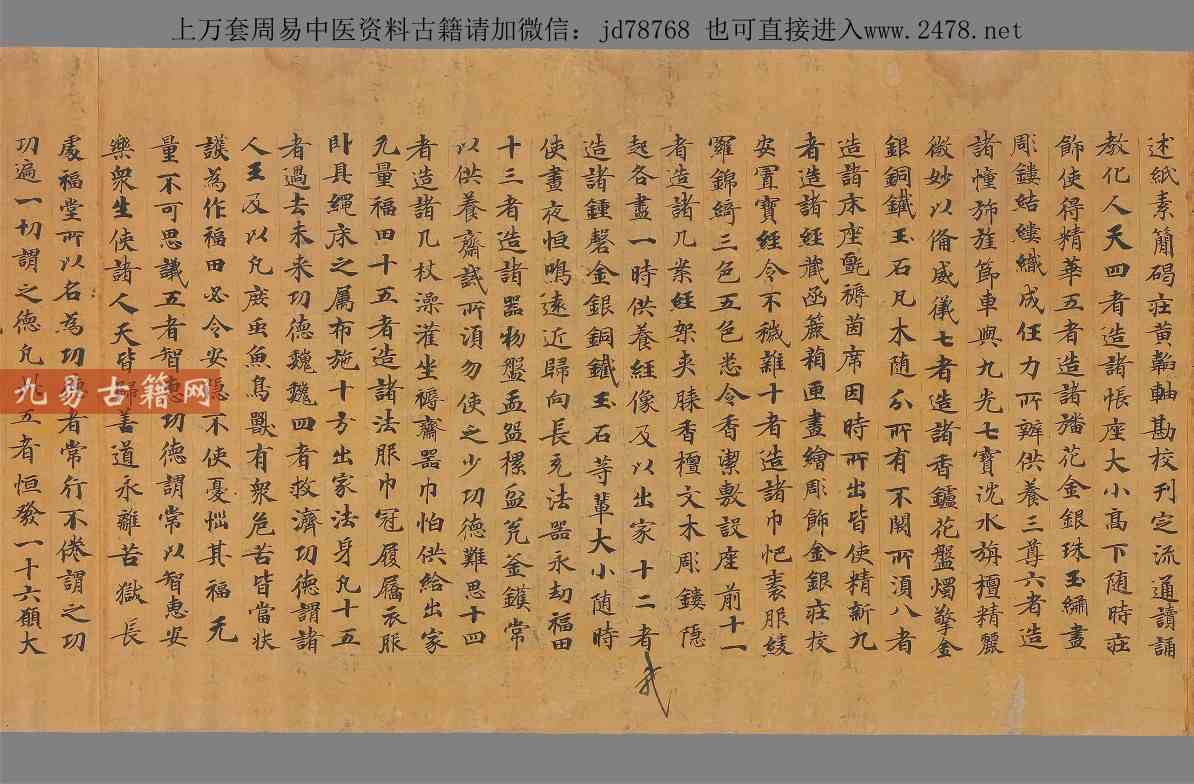 上万套周易中医资料古籍请加微信：jd78768 也可直接进入www.2478.net
述紙素簡碣莊黄韜軸勘校刊定流通讀誦
教化人天四者造諸帳座大小高下随時莊
飾使得精華五者造諸旛花金銀珠玉繡畫
彫鏤結縷織成任力所辦供養三尊六者造
諸幢斾旌節車輿九光七寶沈水旃檀精麗
微妙以俻威儀七者造諸香鑪花盤燭擎金
銀銅鐵玉石凡木随分所有不闕所湏八者
造諸床座氈褥茵席因時所出皆使精新九
者造諸經藏函簏箱匣畫繪彫飾金銀莊校
安置寶經令不穢雜十者造諸巾帊裏服綾
羅錦綺三色五色悉令香潔敷設座前十一
者造諸几案經架夾膝香檀文木彫鏤隱
起各盡一時供養經像及以出家十二者
造諸鍾磬金銀銅鐵玉石等輩大小随時
使晝夜恒鳴遠近歸向長充法器永劫福田
十三者造諸器物盤盂盌樏盆瓮釜鑊常
以供養齋誡所湏勿使之少功德難思十四
者造諸几杖澡灌坐褥齋器巾怕供給出家
无量福田十五者造諸法服巾冠履屩衣服
卧具繩床之屬布施十方出家法身凡十五
者過去未来功德巍巍四者救濟功德謂諸
人王及以凡庶虫魚鳥獸有衆危苦皆當扶
護為作福田必令安隱不使憂惱其福无
量不可思議五者智德功德謂常以智惠安
樂衆生使諸人天皆歸善道永離苦獄長
處福堂所以名為功德者常行不倦謂之功
功遍一切謂之德凡此五者恒發一十六願大
九易古籍网